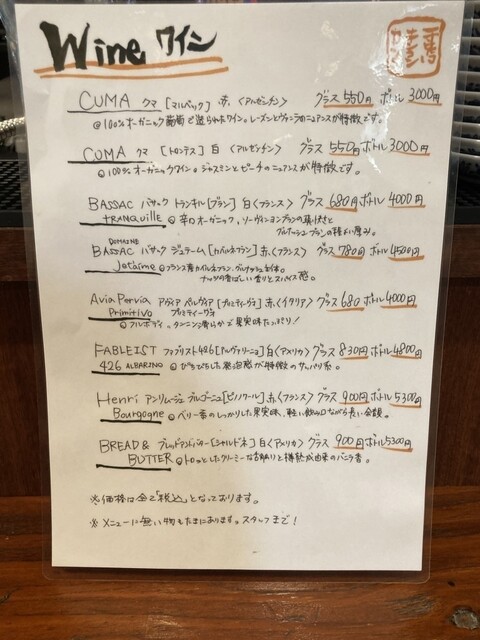 Wine ワイン
CUMA クマ [マルベック] 赤 〈アルゼンチン〉 グラス 550円 ボトル 3000円
◎100%オーガニック葡萄で造られたワイン。レーズンとヴァニラのニュアンスが特徴です。
CUMA クマ [トロンテス] 白 〈アルゼンチン〉 グラス 550円 ボトル 3000円
◎100%オーガニックワイン。ジャスミンとピーチのニュアンスが特徴です。
BASSAC バサック トランキル[ブラン] 白〈フランス〉 グラス 680円 ボトル 4000円
TRANQUILLE ◎辛口オーガニック、ソーヴィニヨンブランの爽快さと
グルナッシュブランの程よい厚み。
DOMAINE
BASSAC バサック ジュテーム[カベルネフラン] 赤〈フランス〉 グラス 780円 ボトル 4500円
Jetaime ◎フランス産カベルネフラン、グルナッシュ主体。
ナッツの香ばしい香りとスパイス感。
Avia Pervia アヴィア ペルヴィア [プリミティーヴォ] 赤〈イタリア〉 グラス 680 ボトル 4000円
Primitivo プリミティーヴォ
◎フルボディ、タンニン滑らかで果実味たっぷり!
FABLEIST ファブリスト426[アルヴァリーニョ] 白〈アメリカ〉 グラス 830円 ボトル 4800円
426 ALBARINO ◎ぴちぴちした発泡感が特徴のサッパリ系。
Henri アンリルージュ ブルゴーニュ[ピノノワール] 赤〈フランス〉 グラス 900円 ボトル 5300円
Bourgogne ◎ベリー香のしっかりした果実味、軽い飲み口ながら長い余韻。
BREAD& ブレッドアンドバター[シャルドネ] 白〈アメリカ〉 グラス 900円 ボトル5300円
BUTTER ◎トロッとしたクリーミーな舌触りと樽熟成由来のバニラ香。
※価格は全て「税込」となっております。
※メニューに無い物もたまにあります。スタッフまで!